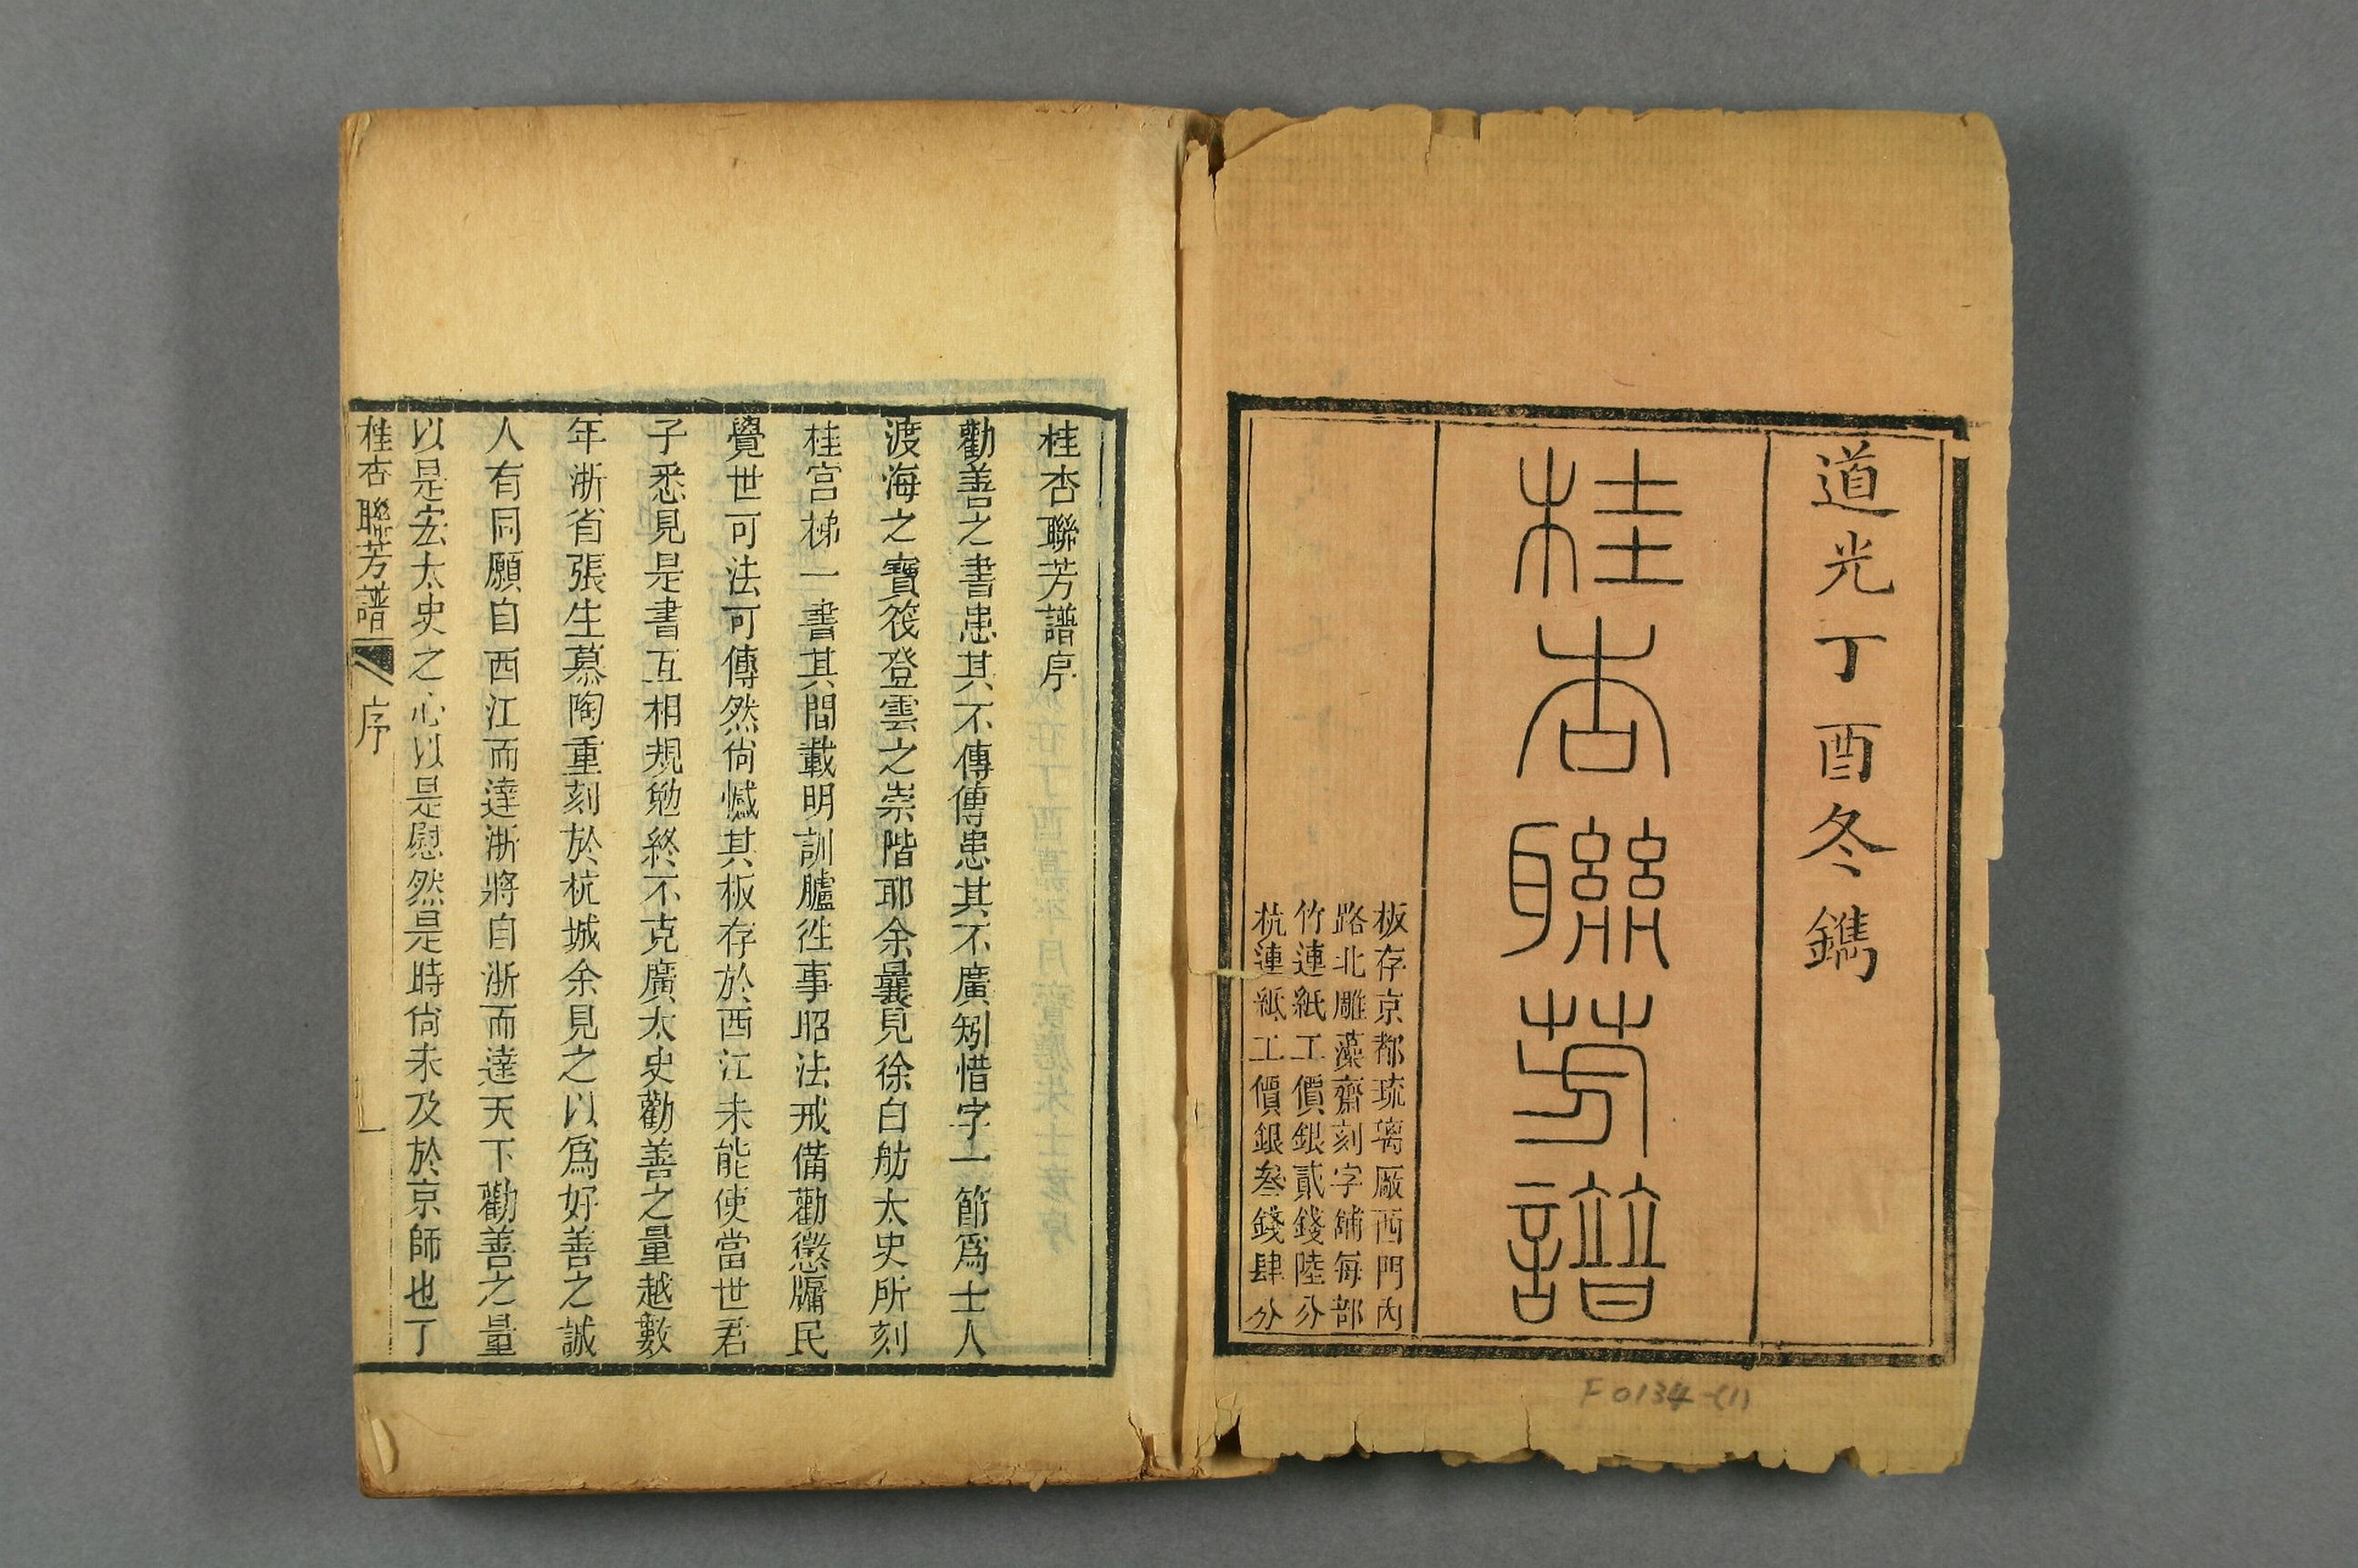 道光丁酉冬鐫
桂杏聯芳譜
板存京都琉璃廠西門內
路北雕藻齋刻字舖每部
竹連紙工價銀貳錢陸分
杭連紙工價銀叁錢肆分
F0134-(1)
桂杏聯芳譜序
勸善之書患其不傳傳患其不廣矧惜字一節爲士人
渡海之寶筏登雲之崇階耶余曩見徐白舫太史所刻
桂宮梯一書其間載明訓臚徃事昭法戒備勸懲牗民
覺世可法可傳然尙憾其板存於西江未能使當世君
子悉見是書互相規勉終不克廣太史勸善之量越數
年浙省張生慕陶重刻於杭城余見之以爲好善之誠
人有同願自西江而達浙將自浙而達天下勸善之量
以是宏太史之心以是慰然是時尙未及於京師也丁
桂杏聯芳譜 序 一